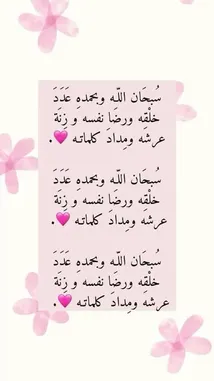 سُبحَان اللّـه وبحمدهِ عَدَدَ
خلْقِه ورضَا نفسه و زِنَة
عرشه ومِدادَ كلماتـه 💗.
سُبحَان اللّـه وبحمدهِ عَدَدَ
خلْقِه ورضَا نفسه و زِنَة
عرشه ومِدادَ كلماتـه 💗.
سُبحَان اللّـه وبحمدهِ عَدَدَ
خلْقِه ورضَا نفسه و زِنَة
عرشه ومِدادَ كلماتـه 💗.